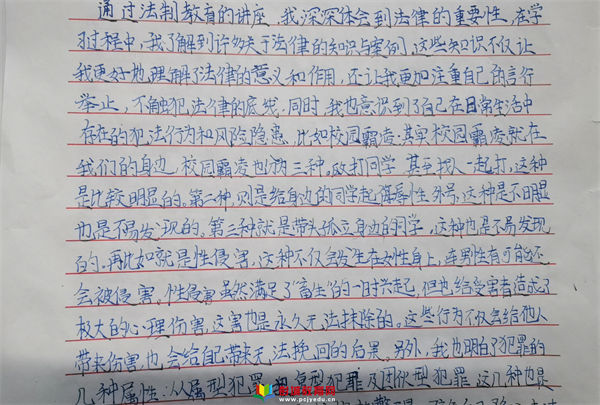 通过法制教育的讲座，我深深体会到法律的重要性，在学
习过程中，我了解到许多关于法律的知识与案例，这些知识不仅让
我更好地理解了法律的意义和作用，还让我更加注重自己的言行
举止，不触犯法律的底线，同时，我也意识到了自己在日常生活中
存在的犯法行为和风险隐患，比如校园霸凌：其实校园霸凌就在
我们的身边，校园霸凌也有三种，殴打同学，甚至找人一起打，这种
是比较明显的。第二种，则是给身边的同学起侮辱性外号，这种是不明显
也是不易发现的。第三种就是带头孤立身边的同学，这种也是不易发现
的。再比如就是性侵害，这种不仅会发生在女性身上，连男性有可能还
会被侵害。性侵害虽然满足了"畜生"的一时兴起，但也给受害者造成了
极大的心理伤害，这害也是永久无法抹除的。这些行为不仅会给他人
带来伤害，也会给自己带来无法挽回的后果。另外，我也明白了犯罪的
几种属性：从属型犯罪 型犯罪及团伙型犯罪 这几种也是
教育教育网
www.pcjyedu.cn